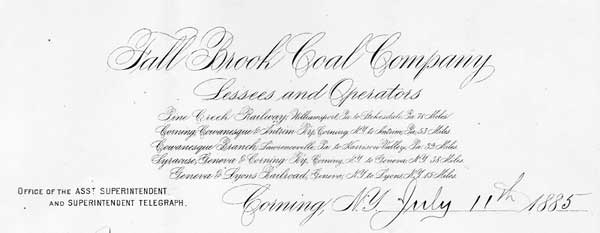 Fall Brook Coal Company
Lessees and Operators
Pine Creek Railway, Williamsport, Pa. to Stokesdale, Pa. 75 Miles.
Corning, Cowanesque & Antrim Ry. Corning, N.Y. to Antrim, Pa. 53 Miles.
Cowanesque Branch, Lawrenceville, Pa. to Harrison Valley, Pa. 32 Miles.
Syracuse, Geneva & Corning Ry. Corning, N.Y. to Geneva, N.Y. 58 Miles.
Geneva & Lyons Railroad, Geneva, N.Y. to Lyons, N.Y. 15 Miles.
OFFICE OF THE ASST SUPERINTENDENT.
AND SUPERINTENDENT TELEGRAPH.
Corning, N.Y. July 11th 1885